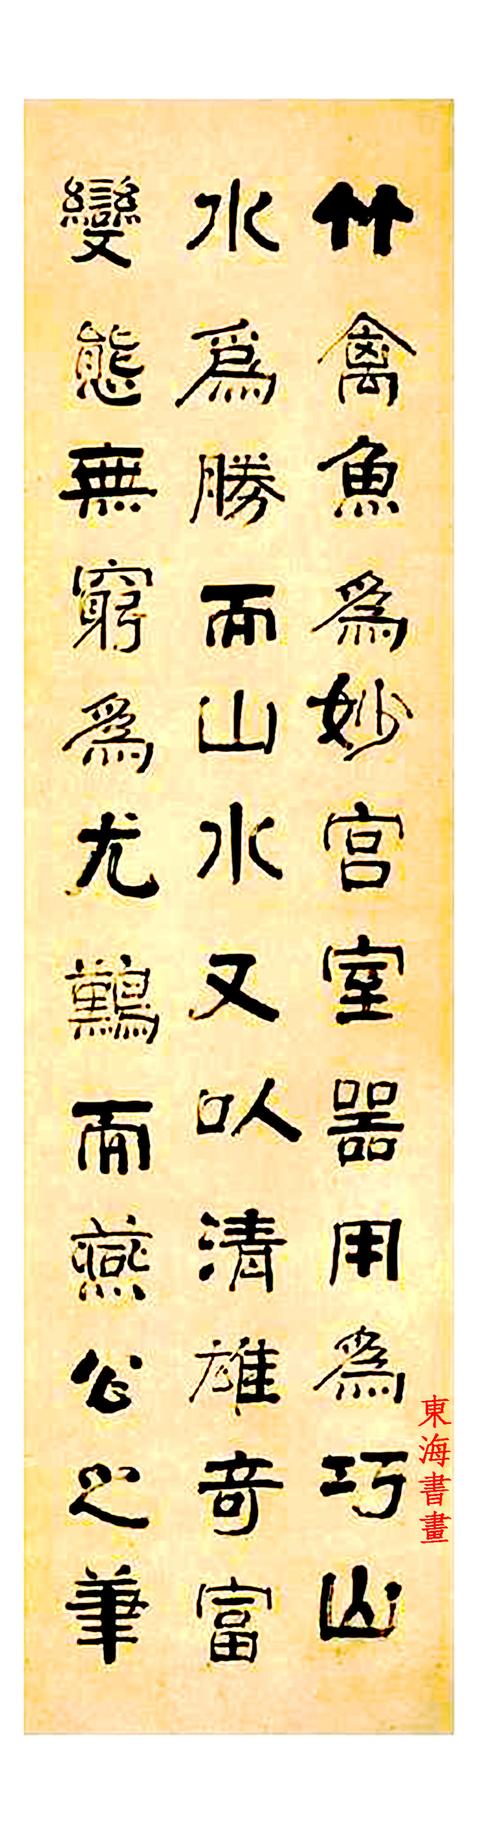 竹禽魚為妙宮室器用為巧山
水為勝而山水又以清雄奇富
變態無窮為尤難而燕公之筆
東海書畫